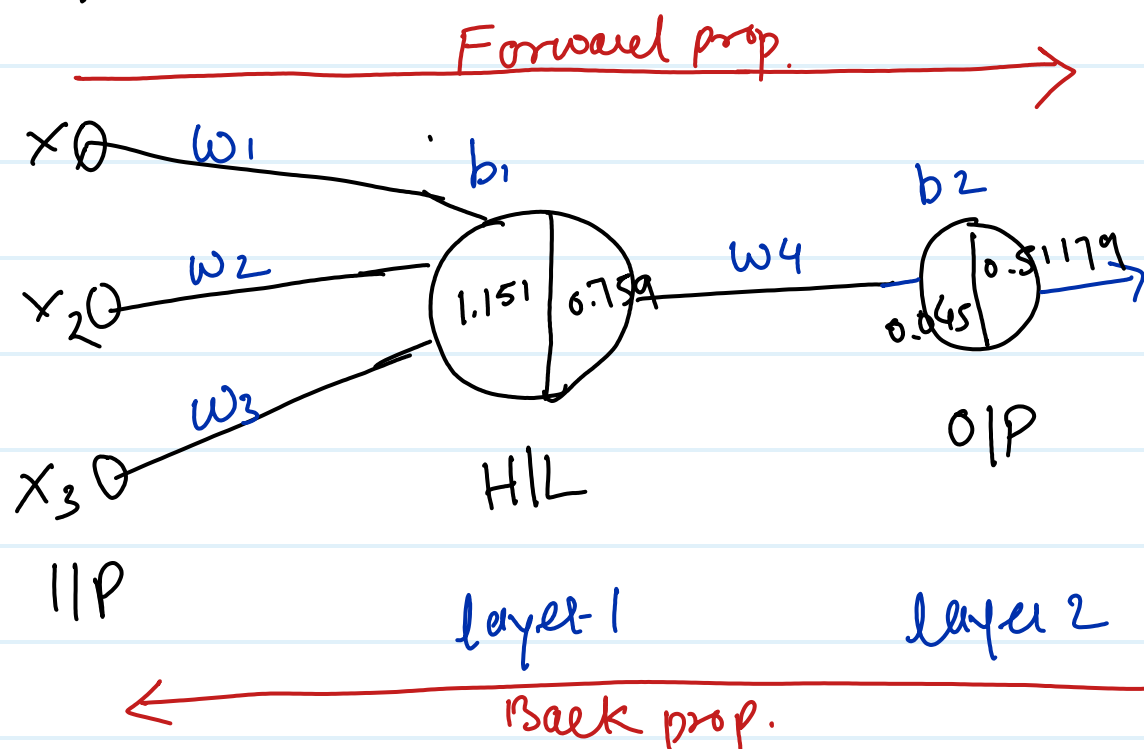 Forward prop.
X
w1
b1
b2
X2
w2
1.151
0.759
w4
0.045
0.51179
w3
X3
H|L
O|P
I|P
layer-1
layer 2
Back prop.